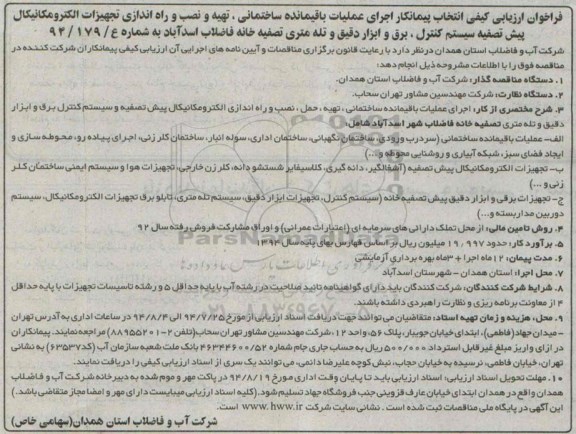 فراخوان ارزیابی کیفی انتخاب پیمانکار اجرای عملیات باقیمانده ساختمانی ، تهیه و نصب و راه اندازی تجهیزات الکترومکانیکال
پیش تصفیه سیستم کنترل ، برق و ابزار دقیق و تله متری تصفیه خانه فاضلاب اسدآباد به شماره ع/ ۱۷۹/ ۹۴
شرکت آب و فاضلاب استان همدان در نظر دارد با رعایت قانون برگزاری مناقصات و آیین نامه های اجرایی آن ارزیابی کیفی پیمانکاران شرکت کننده در
مناقصه فوق را با اطلاعات مشروحه ذیل انجام دهد:
۱. دستگاه مناقصه گذار: شرکت آب و فاضلاب استان همدان.
۲. دستگاه نظارت: شرکت مهندسین مشاور تهران سحاب.
۳. شرح مختصری از کار: اجرای عملیات باقیمانده ساختمانی ، تهیه ، حمل ، نصب و راه اندازی الکترومکانیکال پیش تصفیه و سیستم کنترل برق و ابزار
دقیق و تله متری تصفیه خانه فاضلاب شهر اسدآباد شامل:
الف- عملیات باقیمانده ساختمانی (سردرب ورودی، ساختمان نگهبانی، ساختمان اداری، سوله انبار، ساختمان کلرزنی، اجرای پیاده رو، محوطه سازی و
ایجاد فضای سبز، شبکه آبیاری و روشنایی محوطه و...)
ب- تجهیزات الکترومکانیکال پیش تصفیه (آشغالگیر، دانه گیری، کلاسیفایر شستشو دانه، کلرزن خارجی، تجهیزات هوا و سیستم ایمنی ساختمان کلر
زنی و ...)
ج- تجهیزات برقی و ابزار دقیق پیش تصفیه خانه (سیستم کنترل، تجهیزات ابزار دقیق، سیستم تله متری، تابلو برق تجهیزات الکترومکانیکال، سیستم
دوربین مداربسته و...)
۴. روش تامین مالی: از محل تملک دارائی های سرمایه ای (اعتبارات عمرانی) و اوراق مشارکت فروش رفته سال ۹۲
۵. برآورد کار: حدود ۱۹،۹۹۷ میلیون ریال بر اساس فهارس بهای پایه سال ۱۳۹۴
۶. مدت پیمان: ۱۲ ماه اجرا + ۳ ماه بهره برداری آزمایشی
۷. محل اجرا: استان همدان - شهرستان اسدآباد
۸. شرایط شرکت کنندگان: شرکت کنندگان باید دارای گواهینامه تائید صلاحیت در رشته آب با پایه حداقل ۵ و رشته تاسیسات تجهیزات با پایه حداقل
۴ از معاونت برنامه ریزی و نظارت راهبردی داشته باشند.
۹. محل، هزینه و زمان تهیه اسناد: متقاضیان می توانند جهت دریافت اسناد ارزیابی از مورخ ۹۴/۷/۲۵ الی ۹۴/۸/۴ در ساعات اداری به آدرس تهران
- میدان جهاد(فاطمی)، ابتدای خیابان جویبار، پلاک ۵۶، واحد ۱۲، شرکت مهندسین مشاور تهران سحاب(تلفن ۲-۸۸۹۵۵۲۰۱) مراجعه نمایند. پیمانکاران
در ازای واریز مبلغ غیرقابل استرداد ۵۰۰/۰۰۰ ریال به حساب جاری جام شماره ۴۶۳۴۴۶۰۰/۵۲ بانک ملت شعبه سازمان آب (کد۶۳۵۳۷) به نشانی
تهران، خیابان فاطمی، نرسیده به خیابان حجاب، نبش کوچه علیرضا دائمی، می توانند یک سری از اسناد ارزیابی کیفی را دریافت نمایند.
۱۰. مهلت تحویل اسناد ارزیابی: اسناد ارزیابی باید تا پایان وقت اداری مورخ ۹۴/۸/۱۹ در پاکت مهر و موم شده به دبیرخانه شرکت آب و فاضلاب
همدان واقع در همدان ابتدای خیابان عارف قزوینی جنب فروشگاه جهاد تسلیم شود. (کلیه اسناد ارزیابی میبایست دارای مهر و امضا مجاز متقاضی باشد.)
این آگهی در پایگاه ملی مناقصات ثبت شده است. نشانی سایت شرکت www.hww.ir است.
شرکت آب و فاضلاب استان همدان(سهامی خاص)